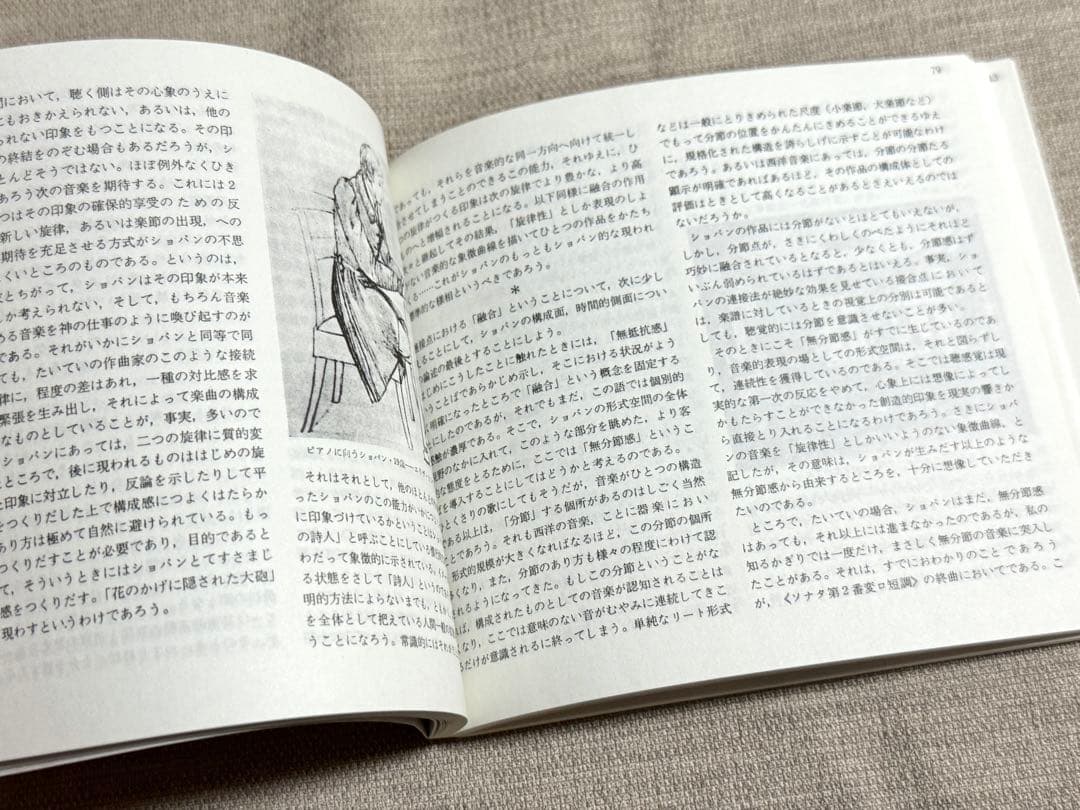 間において，聴く側はその心象のうえに
にもおきかえられない，あるいは，他の
られない印象をもつことになる。その印
の終結をのぞむ場合もあるだろうが，シ
とんどそうではない。ほぼ例外なくひき
あろう次の音楽を期待する。これには2
つはその印象の確保的享受のための反
新しい旋律，あるいは楽節の出現，への
期待を充足させる方式がショパンの不思
くいところのものである。というのは，
とちがって，ショパンはその印象が本来
しか考えられない，そして，もちろん音楽
る音楽を神の仕事のように喚び起すのが
である。それがいかにショパンと同等で同
ても，たいていの作曲家のこのような接続
律に，程度の差はあれ，一種の対比感を求
緊張を生み出し，それによって楽曲の構成
なものとしていることが，事実，多いので
ショパンにあっては，二つの旋律に質的変
たところで，後に現われるものははじめの旋
と印象に対立したり，反論を示したりして平
をつくりだした上で構成感につよくはたらか
あり方は極めて自然に避けられている。もっ
つくりだすことが必要であり，目的であると
て，そういうときにはショパンとてすさまじ
感をつくりだす。「花のかげに隠された大砲」
現わすというわけであろう。
ピアノに向うショパン・29歳
それはそれとして，他のほとん
ったショパンのこの能力がいか
に印象づけているかということは
の詩人」と呼ぶことにしている
わだって象徴的に示されている。
る状態をさして「詩人」という
明的方法によらないまでも，
を全体として把えている人間一般の
うことになろう。常識的にはそれが
79
あっても，それらを音楽的な同一方向へ向けて統一し
させてしまうことのできるこの能力，それゆえに，ひ
の旋律がつくる印象は次の旋律でより豊かな，より高
ものへと増幅されることになる。以下同様に融合の作用
次々と継起してその結果，「旋律性」としか表現のしよ
ない音楽的な象徴曲線を描いてひとつの作品をかたち
る……これがショパンのもっともショパン的な現われ
標準的な様相というべきであろう。
＊
接点における「融合」ということについて，次に少し
ることにして，ショパンの構成面，時間的側面につい
論述の最後とすることにしよう。
はじめにこうしたことに触れたときには，「無抵抗感」
いうことばであらかじめ示し，そこにおける状況がよう
明確になったところで「融合」という概念を固定する
にしたのであるが，それでもまだ，この語では個別的
が濃厚である。そこで，ショパンの形式空間の全体
野のなかに入れて，このような部分を眺めた，より客
的な態度をとるために，ここでは「無分節感」というこ
を導入することにしてはどうかと考えるのである。
とくさりの歌にしてもそうだが，音楽がひとつの構造
ある以上は，「分節」する個所があるのはしごく当然
とであろう。それも西洋の音楽，ことに器楽におい
形式的規模が大きくなればなるほど，この分節の個所
なり，また，分節のあり方も様々の程度にわけて認
れるようになってきた。もしこの分節ということがな
ば，構成されたものとしての音楽が認知されることは
なり，ここでは意味のない音がむやみに連続してきこ
るだけが意識されるに終ってしまう。単純なリート形式
などは一般にとりきめられた尺度（小楽節，大楽節など）
でもって分節の位置をかんたんにきめることができるゆえ
に，規格化された構造を誇らしげに示すことが可能なわけ
であろう。あるいは西洋音楽にあっては，分節の分節たる
顕示が明確であればあるほど，その作品の構成体としての
評価はときとして高くなることがあるときえいえるのでは
ないだろうか。
ショパンの作品には分節がないとはとてもいえないが，
しかし，分節点が，さきにくわしくのべたようにそれほど
巧妙に融合されているとなると，少なくとも，分節感はず
いぶん弱められているはずであるとはいえる。事実，ショ
パンの連接法が絶妙な効果を見せている接合点において
は，楽譜に対しているときの視覚上の分別は可能であると
しても，聴覚的には分節を意識させないことが多い。
そのときにこそ「無分節感」がすでに生じているのであ
り，音楽的表現の場としての形式空間は，それと図らずし
て，連続性を獲得しているのである。そこでは聴感覚は現
実的な第一次の反応をやめて，心象上には想像によってし
かもたらすことができなかった創造的印象を現実の響きか
ら直接とり入れることになるわけであろう。さきにショパ
ンの音楽を「旋律性」としかいいようのない象徴曲線，と
記したが，その意味は，ショパンが生みだす以上のような
無分節感から由来するところを，十分に想像していただき
たいのである。
ところで，たいていの場合，ショパンはまだ，無分節感
はあっても，それ以上には進まなかったのであるが，私の
知るかぎりでは一度だけ，まさしく無分節の音楽に突入し
たことがある。それは，すでにおわかりのことであろう
が，《ソナタ第2番変ロ短調》の終曲においてである。こ